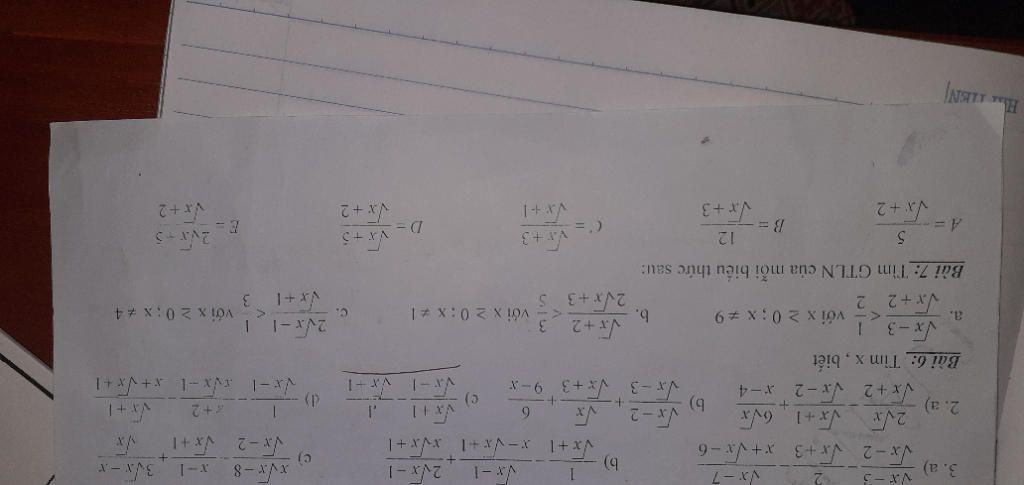 3. a) (√x−3)/(√x−2) − 2/(√x+3) − (√x−7)/(x+√x−6) b) 1/(√x+1) − (√x−1)/(x−√x+1) + (2√x−1)/(x√x+1) c) (x√x−8)/(√x−2) − (x−1)/(√x+1) + (3√x−x)/√x
2. a) 2√x/(√x+2) − (√x+1)/(√x−2) + 6√x/(x−4) b) (√x−2)/(√x−3) + √x/(√x+3) + 6/(9−x) c) (√x+1)/(√x−1) − 1/(√x+1) d) 1/(√x−1) − (x+2)/(x√x−1) − (√x+1)/(x+√x+1)
Bài 6: Tìm x , biết
a. (√x−3)/(√x+2) < 1/2 với x ≥ 0 ; x ≠ 9 b. (√x+2)/(2√x+3) < 3/5 với x ≥ 0 ; x ≠ 1 c. (2√x−1)/(√x+1) < 1/3 với x ≥ 0 ; x ≠ 4
Bài 7: Tìm GTLN của mỗi biểu thức sau:
A = 5/(√x+2) B = 12/(√x+3) C = (√x+3)/(√x+1) D = (√x+5)/(√x+2) E = (2√x+5)/(√x+2)
HẢI TIẾN